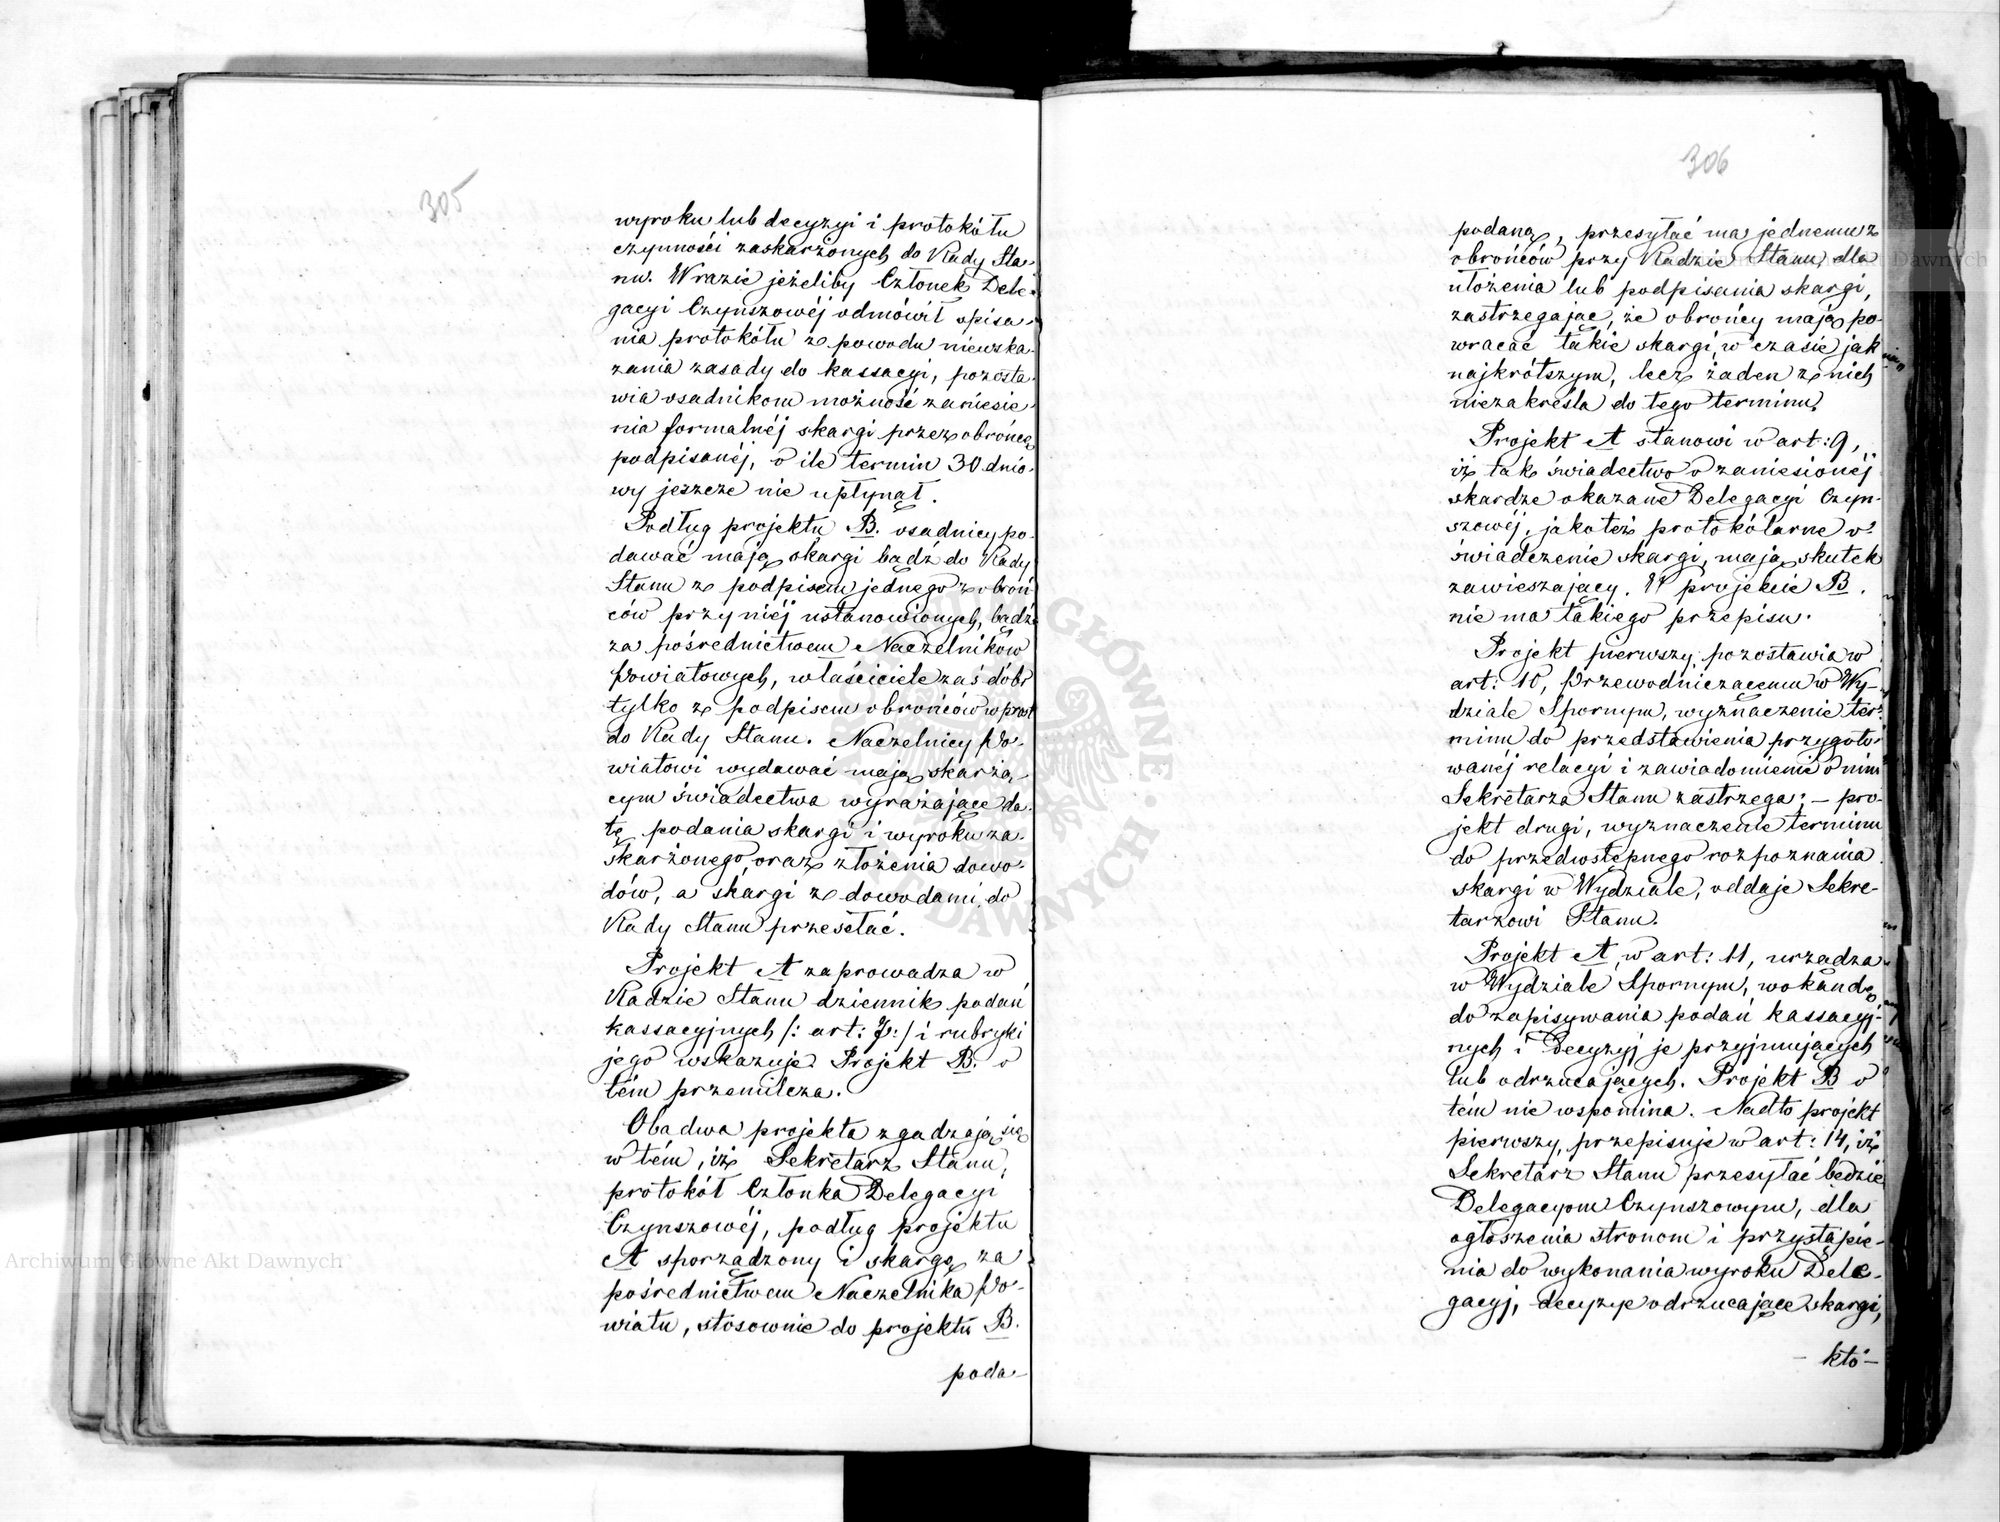 305
wyroku lub decyzyi i protokółu
czynności zaskarżonych do Rady Sta-
nu. Wrazie jeżeliby Członek Dele-
gacyi Czynszowéj odmówił spisa-
nia protokółu z powodu niewska-
zania zasady do kassacyi, pozosta-
wia osadnikom możność zaniesie-
nia formalnéj skargi przez obrońcę
podpisanéj, o ile termin 30 dnio-
wy jeszcze nie upłynął.
Podług projektu B. osadnicy po-
dawać mają skargi bądź do Rady
Stanu z podpisem jednego z obroń-
ców przy niéj ustanowionych, bądź
za pośrednictwem Naczelników
Powiatowych, właściciele zaś dóbr
tylko z podpisem obrońców wprost
do Rady Stanu. Naczelnicy Po-
wiatowi wydawać mają skarżą-
cym świadectwa wyrażające da-
tę podania skargi i wyroku za-
skarżonego, oraz złożenia dowo-
dów, a skargi z dowodami, do
Rady Stanu przesłać.
Projekt A zaprowadza w
Radzie Stanu dziennik podań
kassacyjnych /: art: 7:/ i rubryki
jego wskazuje. Projekt B. o
tém przemilcza.
Obadwa projekta zgadzają się
w tém, iż Sekretarz Stanu,
protokół Członka Delegacyi
Czynszowéj, podług projektu
A sporządzony i skargę za
pośrednictwem Naczelnika Po-
wiatu, stosownie do projektu B.
poda-
306
podaną, przesyłać ma jednemu z
obrońców przy Radzie Stanu, dla
ułożenia lub podpisania skargi,
zastrzegając, że obrońcy mają po-
wracać takie skargi, w czasie jak
najkrótszym, lecz żaden z nich
niezakreśla do tego terminu.
Projekt A stanowi w art: 9,
iż tak świadectwo o zaniesionéj
skardze okazane Delegacyi Czyn-
szowéj, jakoteż protokólarne o-
świadczenie skargi, mają skutek
zawieszający. W projekcie B.
nie ma takiego przepisu.
Projekt pierwszy, pozostawia w
art: 10, Przewodniczącemu w Wy-
dziale Spornym, wyznaczenie ter-
minu do przedstawienia przygoto-
wanéj relacyi i zawiadomienie o nim
Sekretarza Stanu zastrzega; — pro-
jekt drugi, wyznaczenie terminu
do przedwstępnego rozpoznania
skargi w Wydziale, oddaje Sekre-
tarzowi Stanu.
Projekt A, w art: 11, urządza
w Wydziale Spornym, wokandę
do zapisywania podań kassacyj-
nych i Decyzyj je przyjmujących
lub odrzucających. Projekt B o
tém nie wspomina. Nadto projekt
pierwszy, przepisuje w art: 14, iż
Sekretarz Stanu przesyłać będzie
Delegacyom Czynszowym, dla
ogłoszenia stronom i przystąpie-
nia do wykonania wyroku Dele-
gacyj, decyzye odrzucające skargi,
— któ-
Archiwum Główne Akt Dawnych